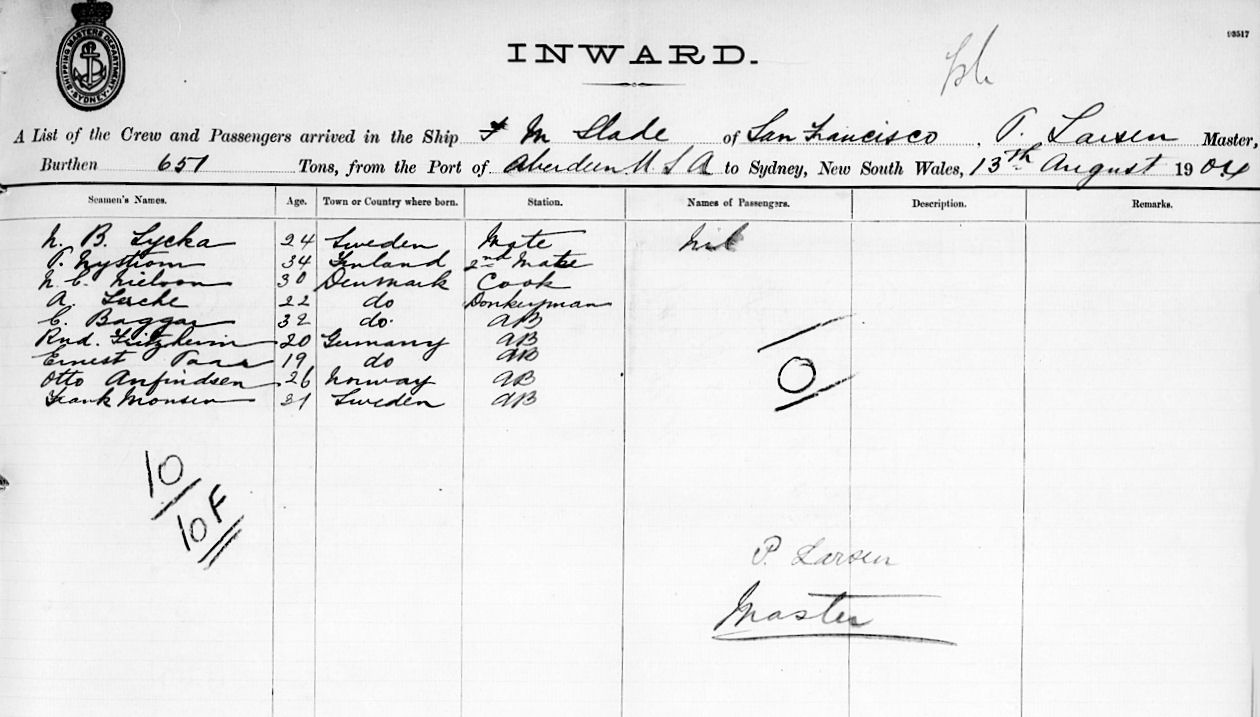 SHIPPING MASTERS DEPARTMENT SYDNEY
93517
INWARD.
A List of the Crew and Passengers arrived in the Ship F M Slade of San Francisco, P. Larsen Master,
Burthen 651 Tons, from the Port of Aberdeen U S A to Sydney, New South Wales, 13th August 1904
Seamen's Names. Age. Town or Country where born. Station. Names of Passengers. Description. Remarks.
N. B. Lycka 24 Sweden Mate Nil
P. Nystrom 34 Finland 2nd Mate
N. C. Nielson 30 Denmark Cook
A. 22 do Donkeyman
C. Baggar 32 do. AB
Rud. 20 Germany AB
Ernest 19 do AB
Otto Anfindsen 26 Norway AB
Frank Monsen 31 Sweden AB
0
10
10 F
P. Larsen
Master